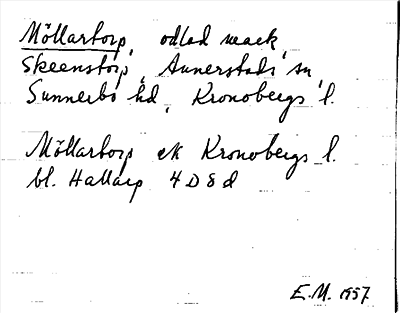 Möllartorp, odlad mark,
Skeenstorp, Annerstads sn,
Sunnerbo hd, Kronobergs l.
Möllartorp ek Kronobergs l.
bl. Hallarp 4 D 8 d
E.M. 1957